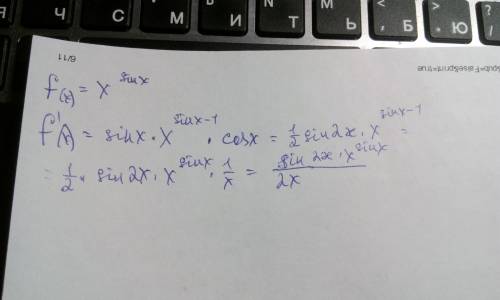 Я Ч С М И Т Ь < , Б > . Ю ? /
6/11
spub=False&print=true
f(x) = x^sinx
f'(x) = sinx · x^sinx-1 · cosx = 1/2 sin2x · x^sinx-1 =
= 1/2 · sin2x · x^sinx · 1/x = sin2x · x^sinx / 2x